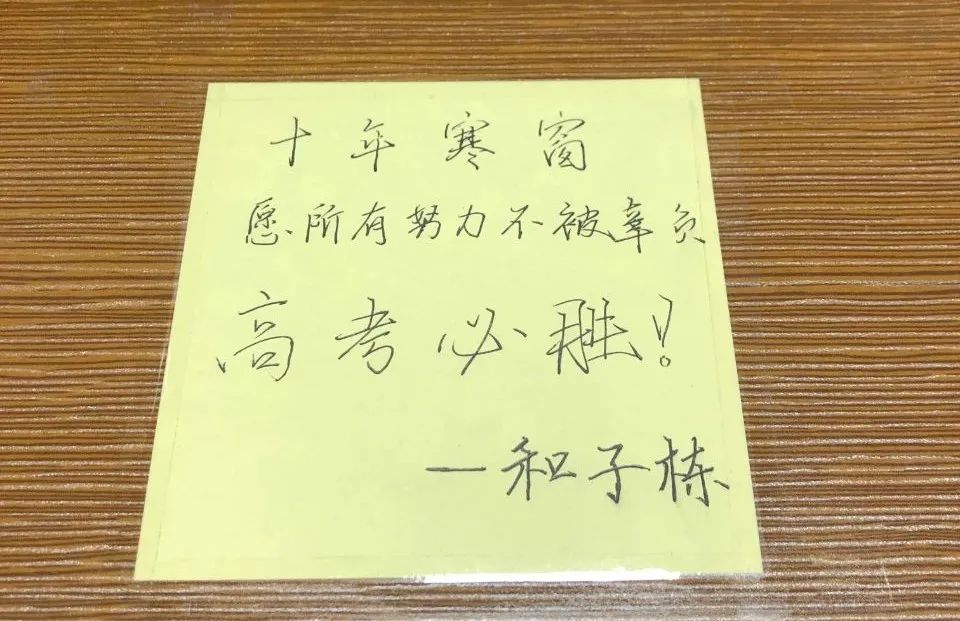 十年寒窗
愿所有努力不被辜负
高考必胜!
—和子栋